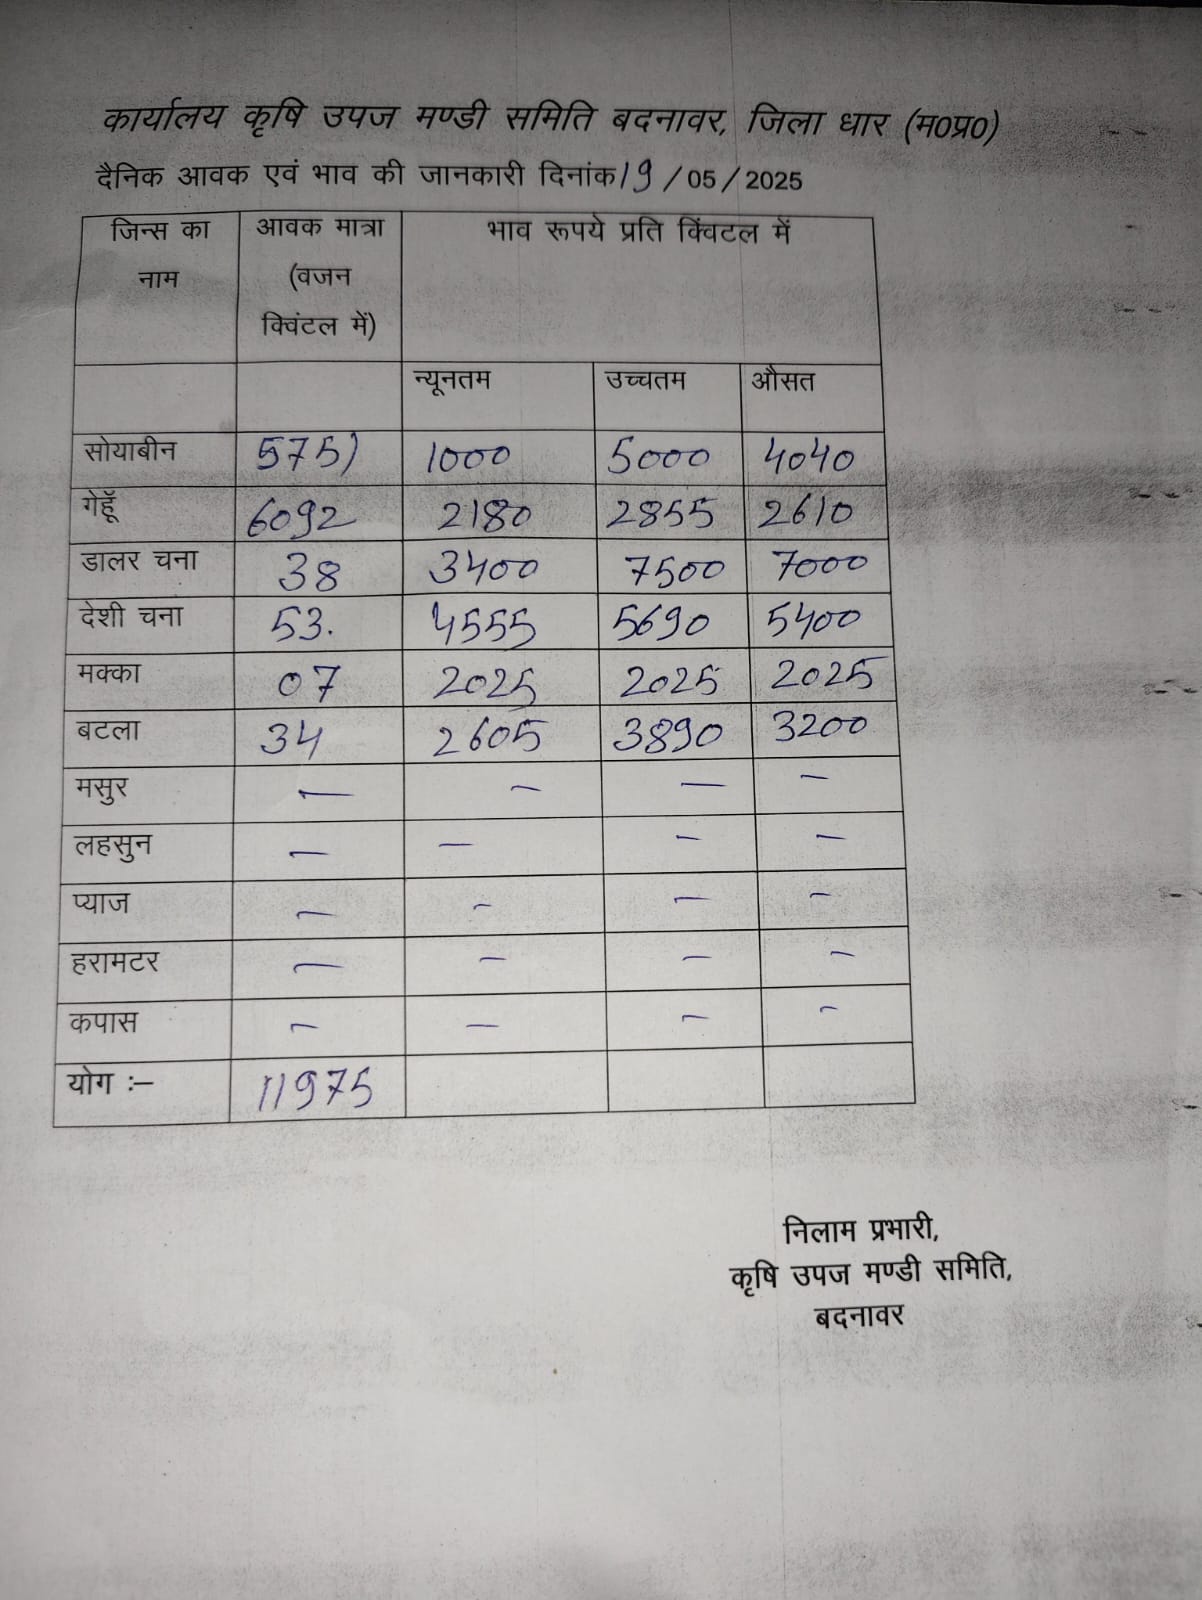 कार्यालय कृषि उपज मण्डी समिति बदनावर, जिला धार (म0प्र0)
दैनिक आवक एवं भाव की जानकारी दिनांक 19 / 05 / 2025
जिन्स का नाम आवक मात्रा (वजन क्विंटल में) भाव रूपये प्रति क्विंटल में
न्यूनतम उच्चतम औसत
सोयाबीन 5751 1000 5000 4040
गेहूॅ 6092 2180 2855 2610
डालर चना 38 3400 7500 7000
देशी चना 53. 4555 5690 5400
मक्का 07 2025 2025 2025
बटला 34 2605 3890 3200
मसुर — — — —
लहसुन — — — —
प्याज — — — —
हरामटर — — — —
कपास — — — —
योग :– 11975
निलाम प्रभारी,
कृषि उपज मण्डी समिति,
बदनावर